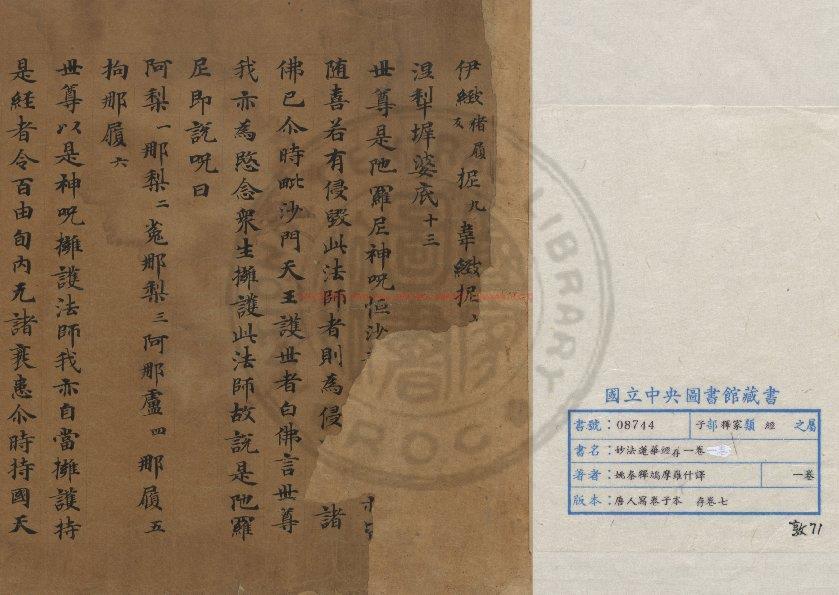 伊緻猪履
友柅九韋緻柅
涅犁墀婆底十三
世尊是陁羅尼神呪恒沙
随喜若有侵毀此法師者則為侵 諸
佛已尒時毗沙門天王護世者白佛言世尊
我亦為愍念衆生擁護此法師故說是陁羅
尼即說呪曰
阿梨一那梨二㝹那梨三阿那盧四那履五
拘那履六
世尊以是神呪擁護法師我亦自當擁護持
是經者令百由旬内无諸衰患尒時持國天
國立中央圖書館藏書
書號：08744 子部釋家類 經 之屬
書名：妙法蓮華經存一卷
著者：姚秦釋鳩摩羅什譯 一卷
版本：唐人寫卷子本 存卷七
敦71